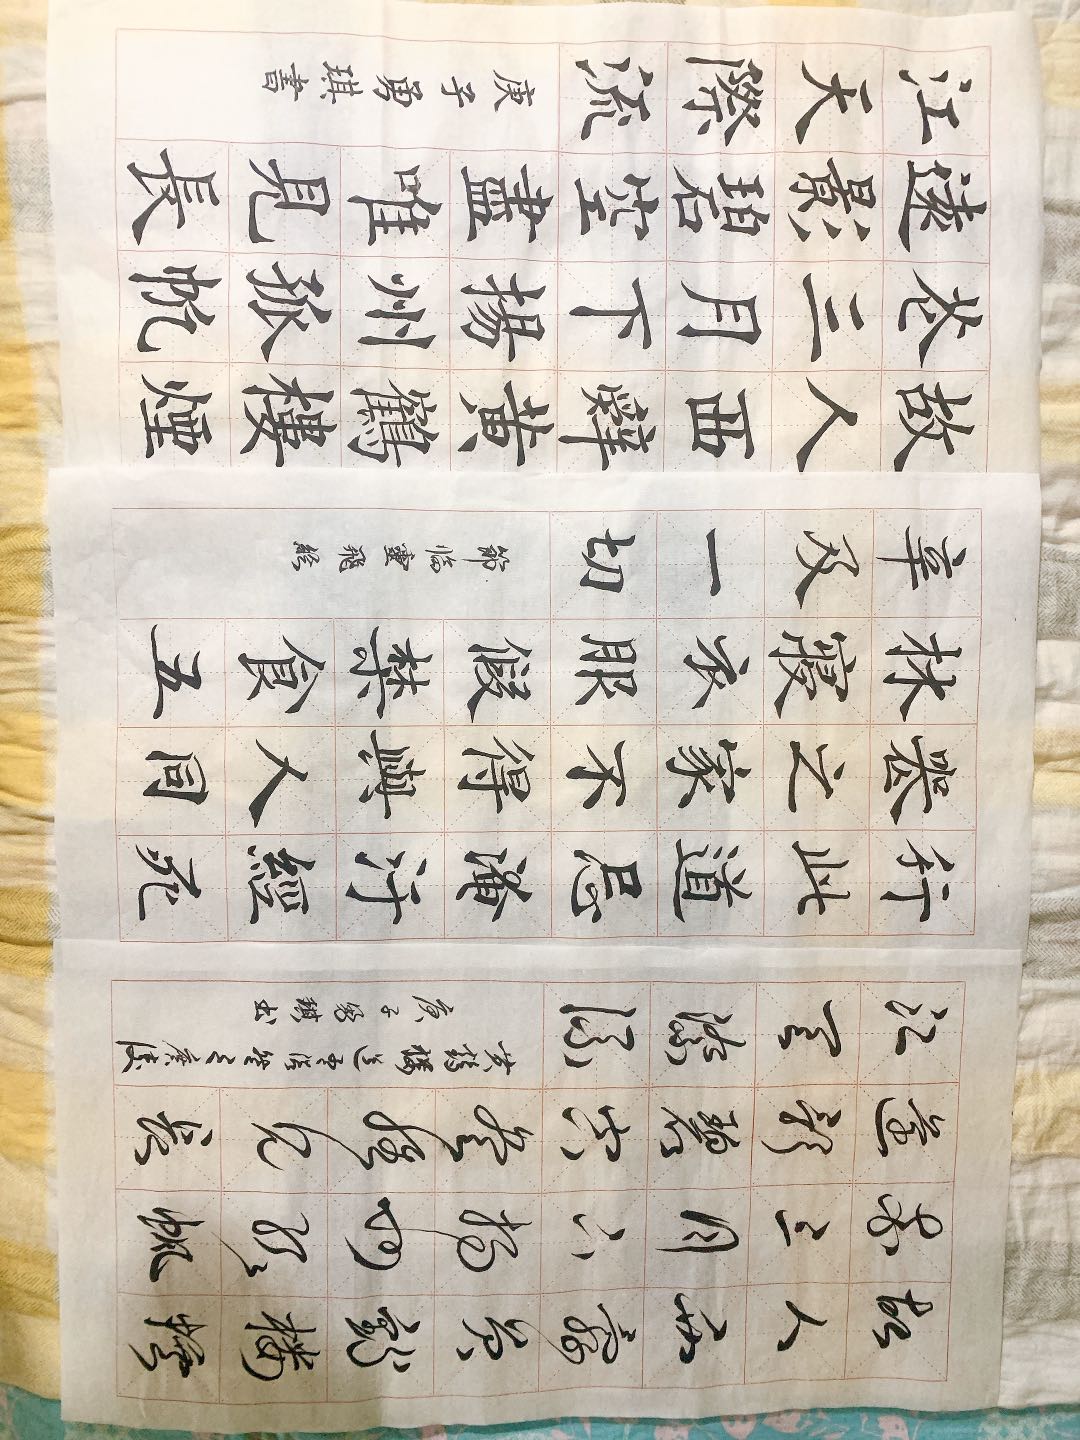 故人西辭黃鶴樓煙
花三月下揚州孤帆
遠影碧空盡唯見長
江天際流
黃鶴樓送孟浩然之廣陵
庚子勇琪書
行此道忌淹汙經死
喪之家不得與人同
牀寢衣服假禁食五
辛及一切
節臨靈飛經
故人西辭黃鶴樓煙
花三月下揚州孤帆
遠影碧空盡唯見長
江天際流
庚子勇琪書